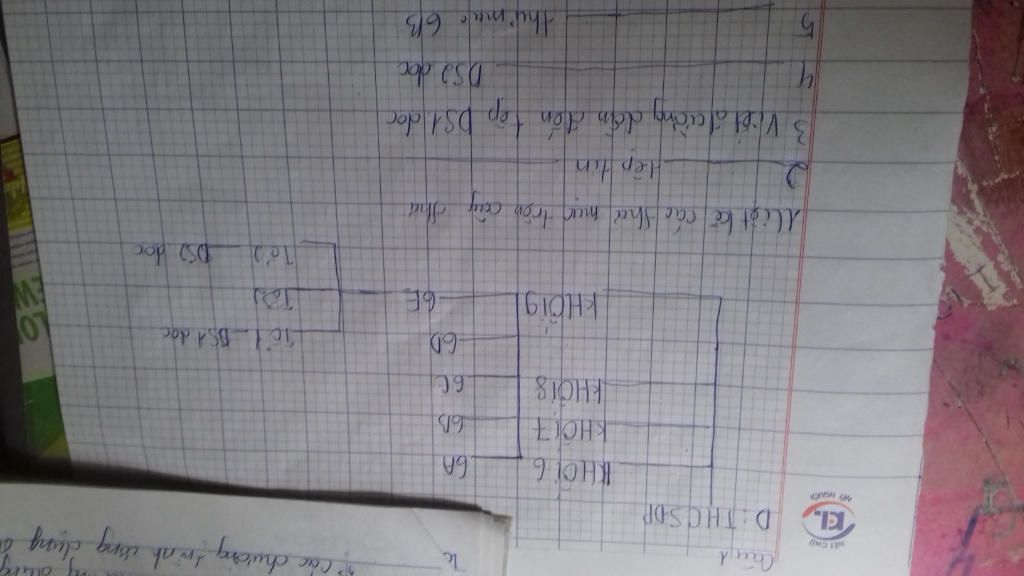 NÉT CHỮ
KL
NẾT NGƯỜI
D: THCSĐP
KHỐI 6 6A
KHỐI 7 6B
KHỐI 8 6C
6D
KHỐI 9 6E
Tổ 1 DS1.doc
Tổ 2
DS2 doc
Liệt kê các thư mục trên cây thư
2 tệp tin
3 Viết đường dẫn đến tệp DS1.doc
4 DS2 doc
5 thư mục 6B
các chương trình ứng dụng